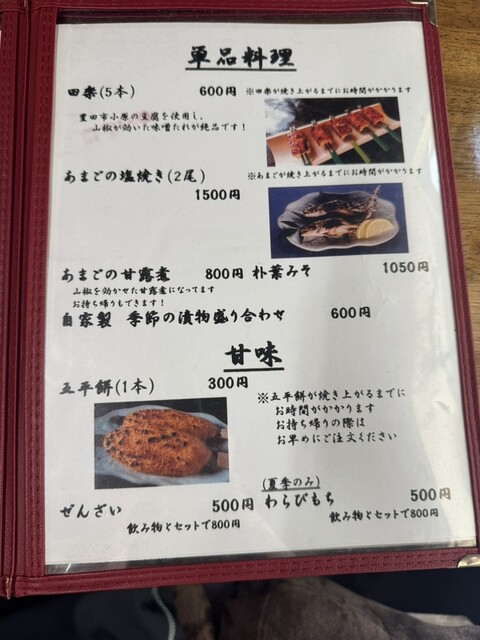 単品料理
田楽(5本) 600円 ※田楽が焼き上がるまでにお時間がかかります
豊田市小原の豆腐を使用し、
山椒が効いた味噌だれが絶品です！
あまごの塩焼き(2尾) ※あまごが焼き上がるまでにお時間がかかります
1500円
あまごの甘露煮 800円 朴葉みそ 1050円
山椒を効かせた甘露煮になってます
お持ち帰りもできます！
自家製 季節の漬物盛り合わせ 600円
甘味
五平餅(1本) 300円
※五平餅が焼き上がるまでに
お時間がかかります
お持ち帰りの際は
お早めにご注文ください
ぜんざい 500円
飲み物とセットで800円
(夏季のみ)
わらびもち 500円
飲み物とセットで800円